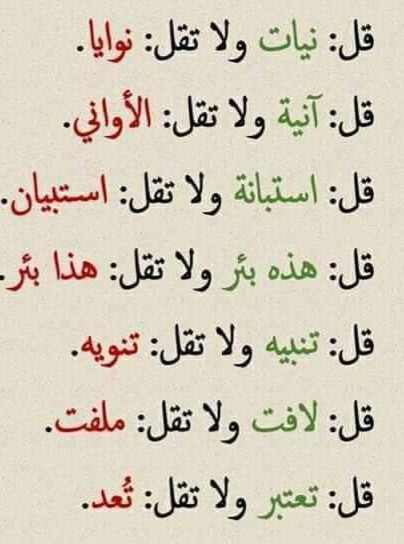 قل: نيات ولا تقل: نوايا.
قل: آنية ولا تقل: الأواني.
قل: استبانة ولا تقل: استبيان.
قل: هذه بئر ولا تقل: هذا بئر.
قل: تنبيه ولا تقل: تنويه.
قل: لافت ولا تقل: ملفت.
قل: تعتبر ولا تقل: تُعد.